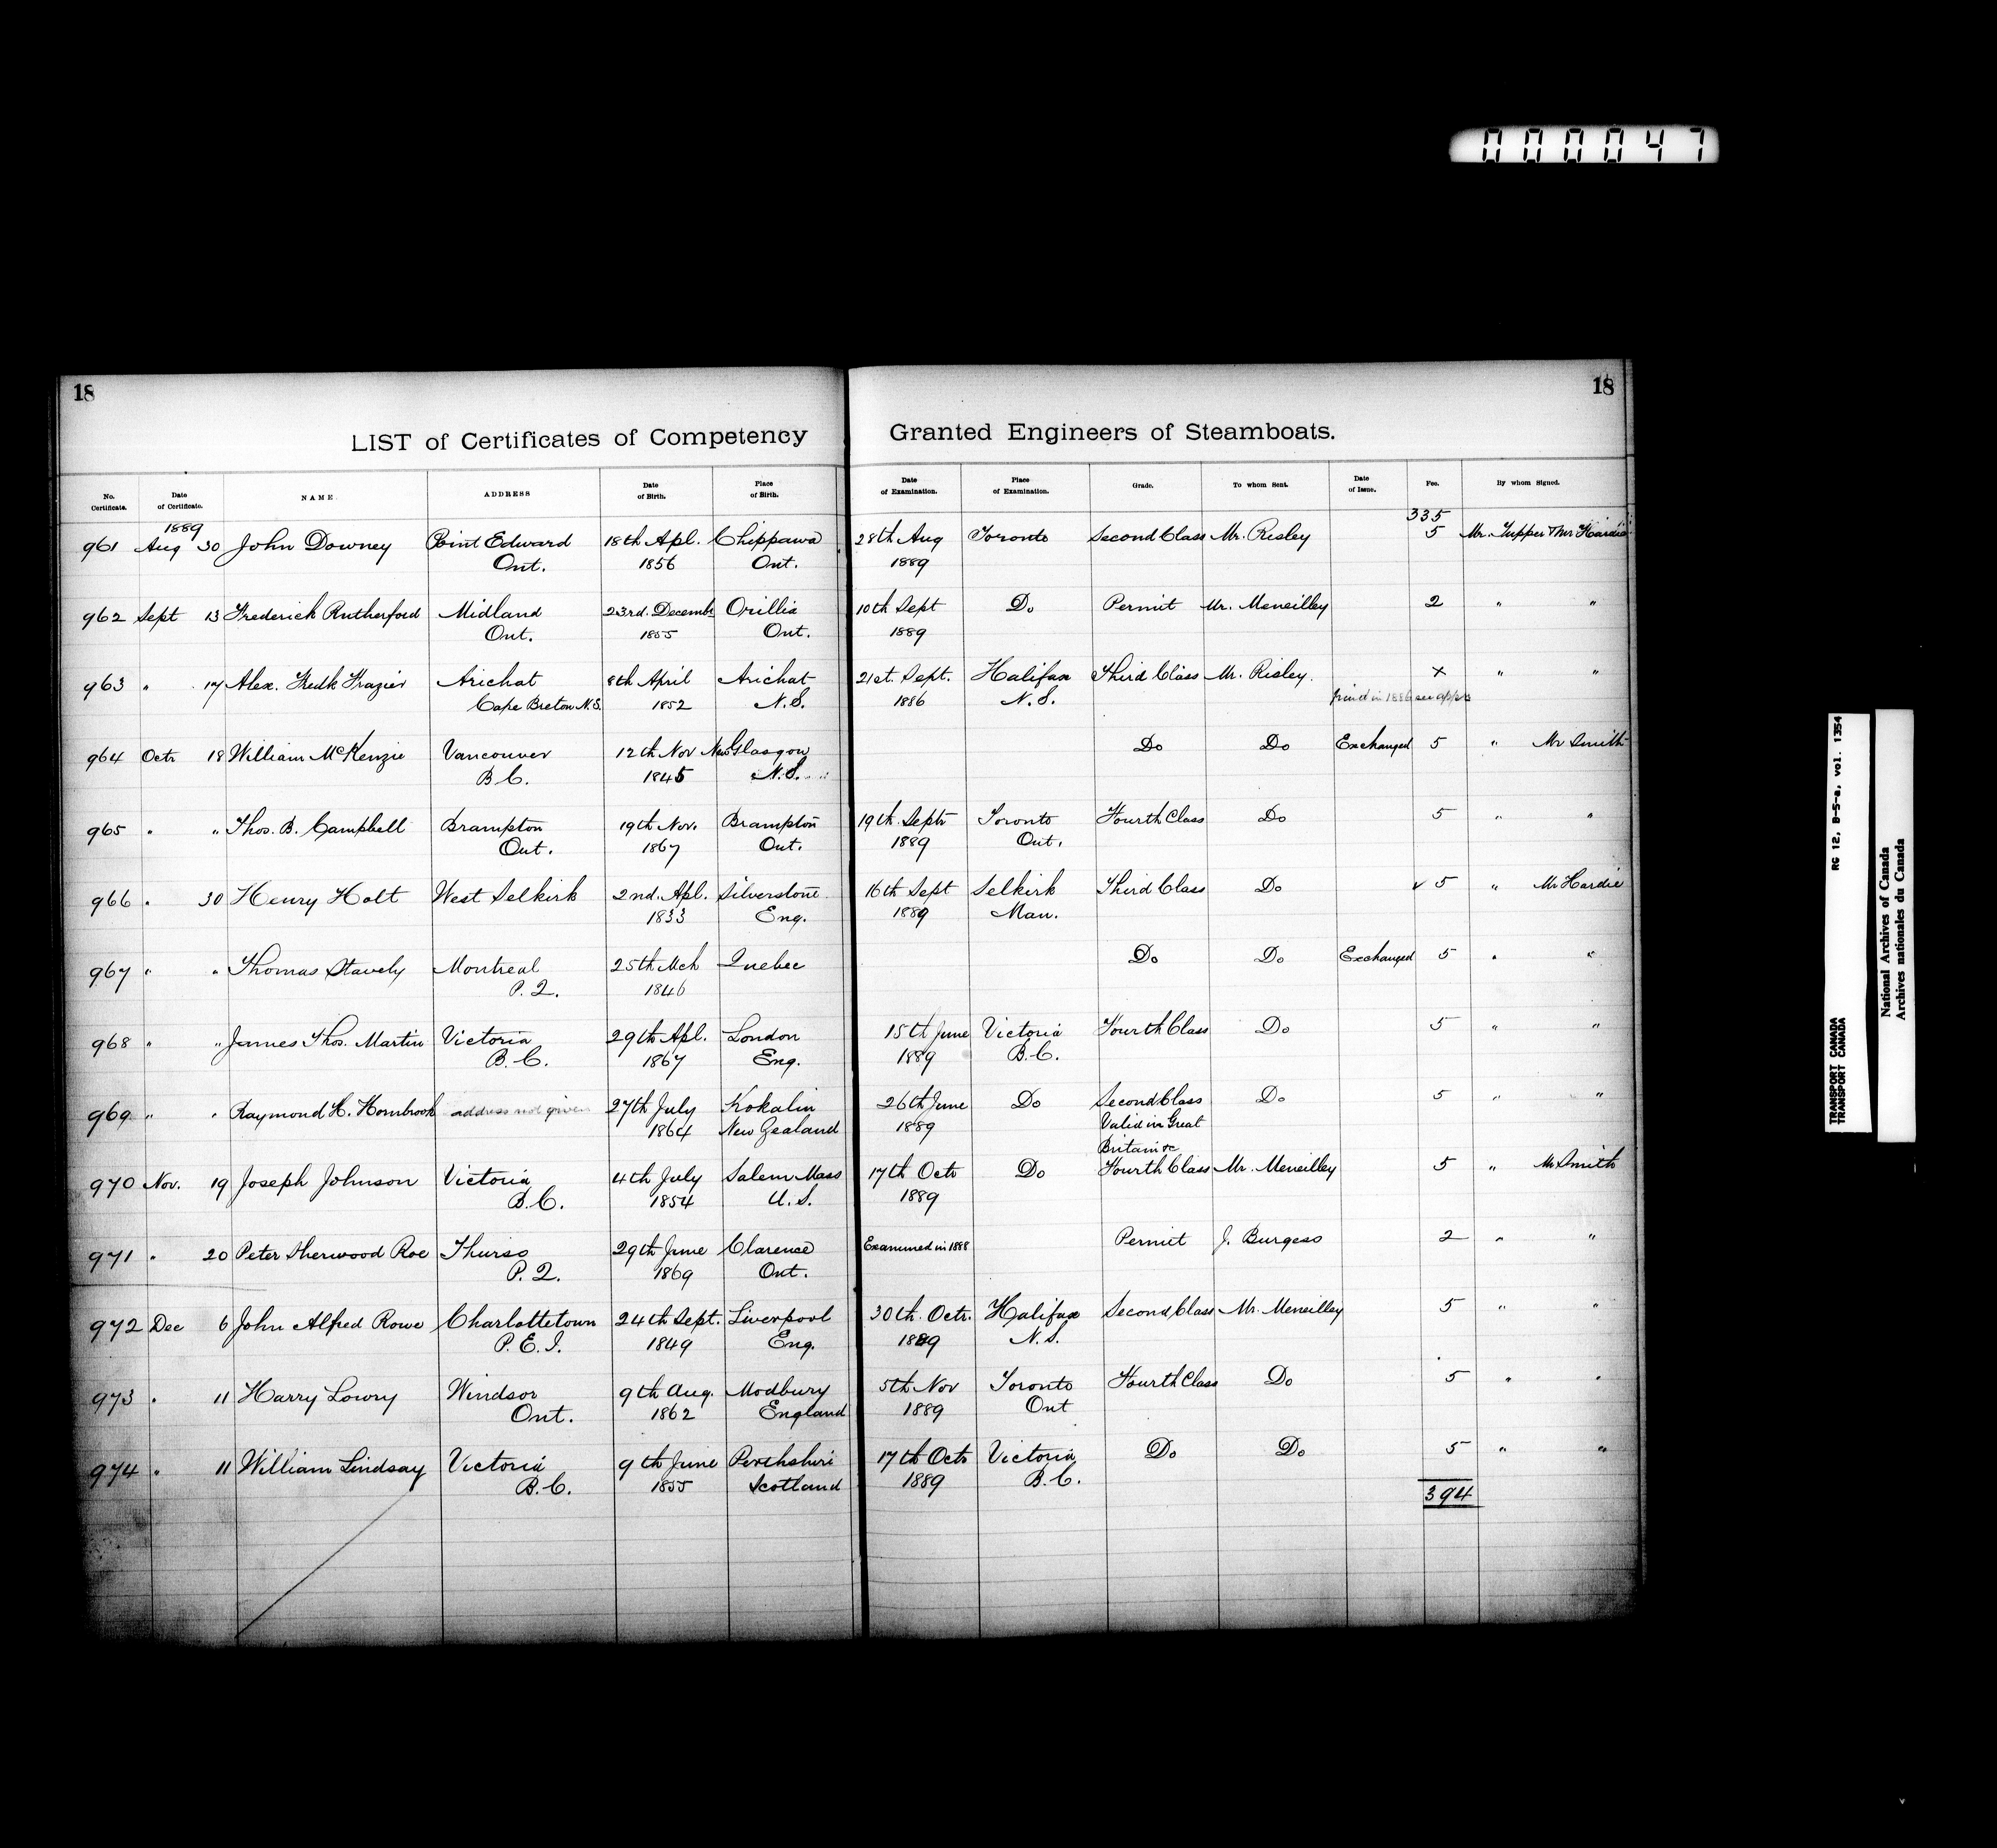 000047
18
18
LIST of Certificates of Competency Granted Engineers of Steamboats.
No. Certificate. Date of Certificate. NAME. ADDRESS Date of Birth. Place of Birth. Date of Examination. Place of Examination. Grade. To whom Sent. Date of Issue. Fee. By whom Signed.
1889 335
961 Aug 30 John Downey Point Edward 18th Apl. Chippawa 28th Aug Toronto Second Class Mr. Risley 5 Mr. Tupper & Mr Hardie
Ont. 1856 Ont. 1889
962 Sept 13 Frederick Rutherford Midland 23rd. Decembr Orillia 10th Sept Do Permit Mr. Meneilley 2 " "
Ont. 1855 Ont. 1889
963 " 17 Alex. Fredk Frazier Arichat 8th April Arichat 21st. Sept. Halifax Third Class Mr. Risley. x " "
Cape Breton N.S. 1852 N.S. 1886 N.S. in 1886 see
964 Octr 18 William McKenzie Vancouver 12th Nov New Glasgow Do Do Exchanged 5 " Mr Smith
B.C. 1845 N.S.
965 " " Thos. B. Campbell Brampton 19th Nov. Brampton 19th Septr Toronto Fourth Class Do 5 " "
Ont. 1867 Ont. 1889 Ont.
966 " 30 Henry Holt West Selkirk 2nd. Apl. Silverstone 16th Sept Selkirk Third Class Do ✓ 5 " Mr Hardie
1833 Eng. 1889 Man.
967 " " Thomas Stavely Montreal 25th Mch Quebec Do Do Exchanged 5 " "
P.Q. 1846
968 " " James Thos. Martin Victoria 29th Apl. London 15th June Victoria Fourth Class Do 5 " "
B.C. 1867 Eng. 1889 B.C.
969 " " Raymond H. Hornbrook address not given 27th July Kokalin 26th June Do Second Class Do 5 " "
1864 New Zealand 1889 Valid in Great
Britain &c
970 Nov. 19 Joseph Johnson Victoria 4th July Salem Mass 17th Octr Do Fourth Class Mr. Meneilley 5 " Mr Smith
B.C. 1854 U.S. 1889
971 " 20 Peter Sherwood Roe Thurso 29th June Clarence Examined in 1888 Permit J. Burgess 2 " "
P.Q. 1869 Ont.
972 Dec 6 John Alfred Rowe Charlottetown 24th Sept. Liverpool 30th. Octr. Halifax Second Class Mr. Meneilley 5 " "
P.E.I. 1849 Eng. 1889 N.S.
973 " 11 Harry Lowry Windsor 9th Aug. Modbury 5th Nov Toronto Fourth Class Do 5 " "
Ont. 1862 England 1889 Ont
974 " 11 William Lindsay Victoria 9th June Perthshire 17th Octr Victoria Do Do 5 " "
B.C. 1855 Scotland 1889 B.C.
394
TRANSPORT CANADA RG 12, B-5-a, vol. 1354
TRANSPORT CANADA
National Archives of Canada
Archives nationales du Canada